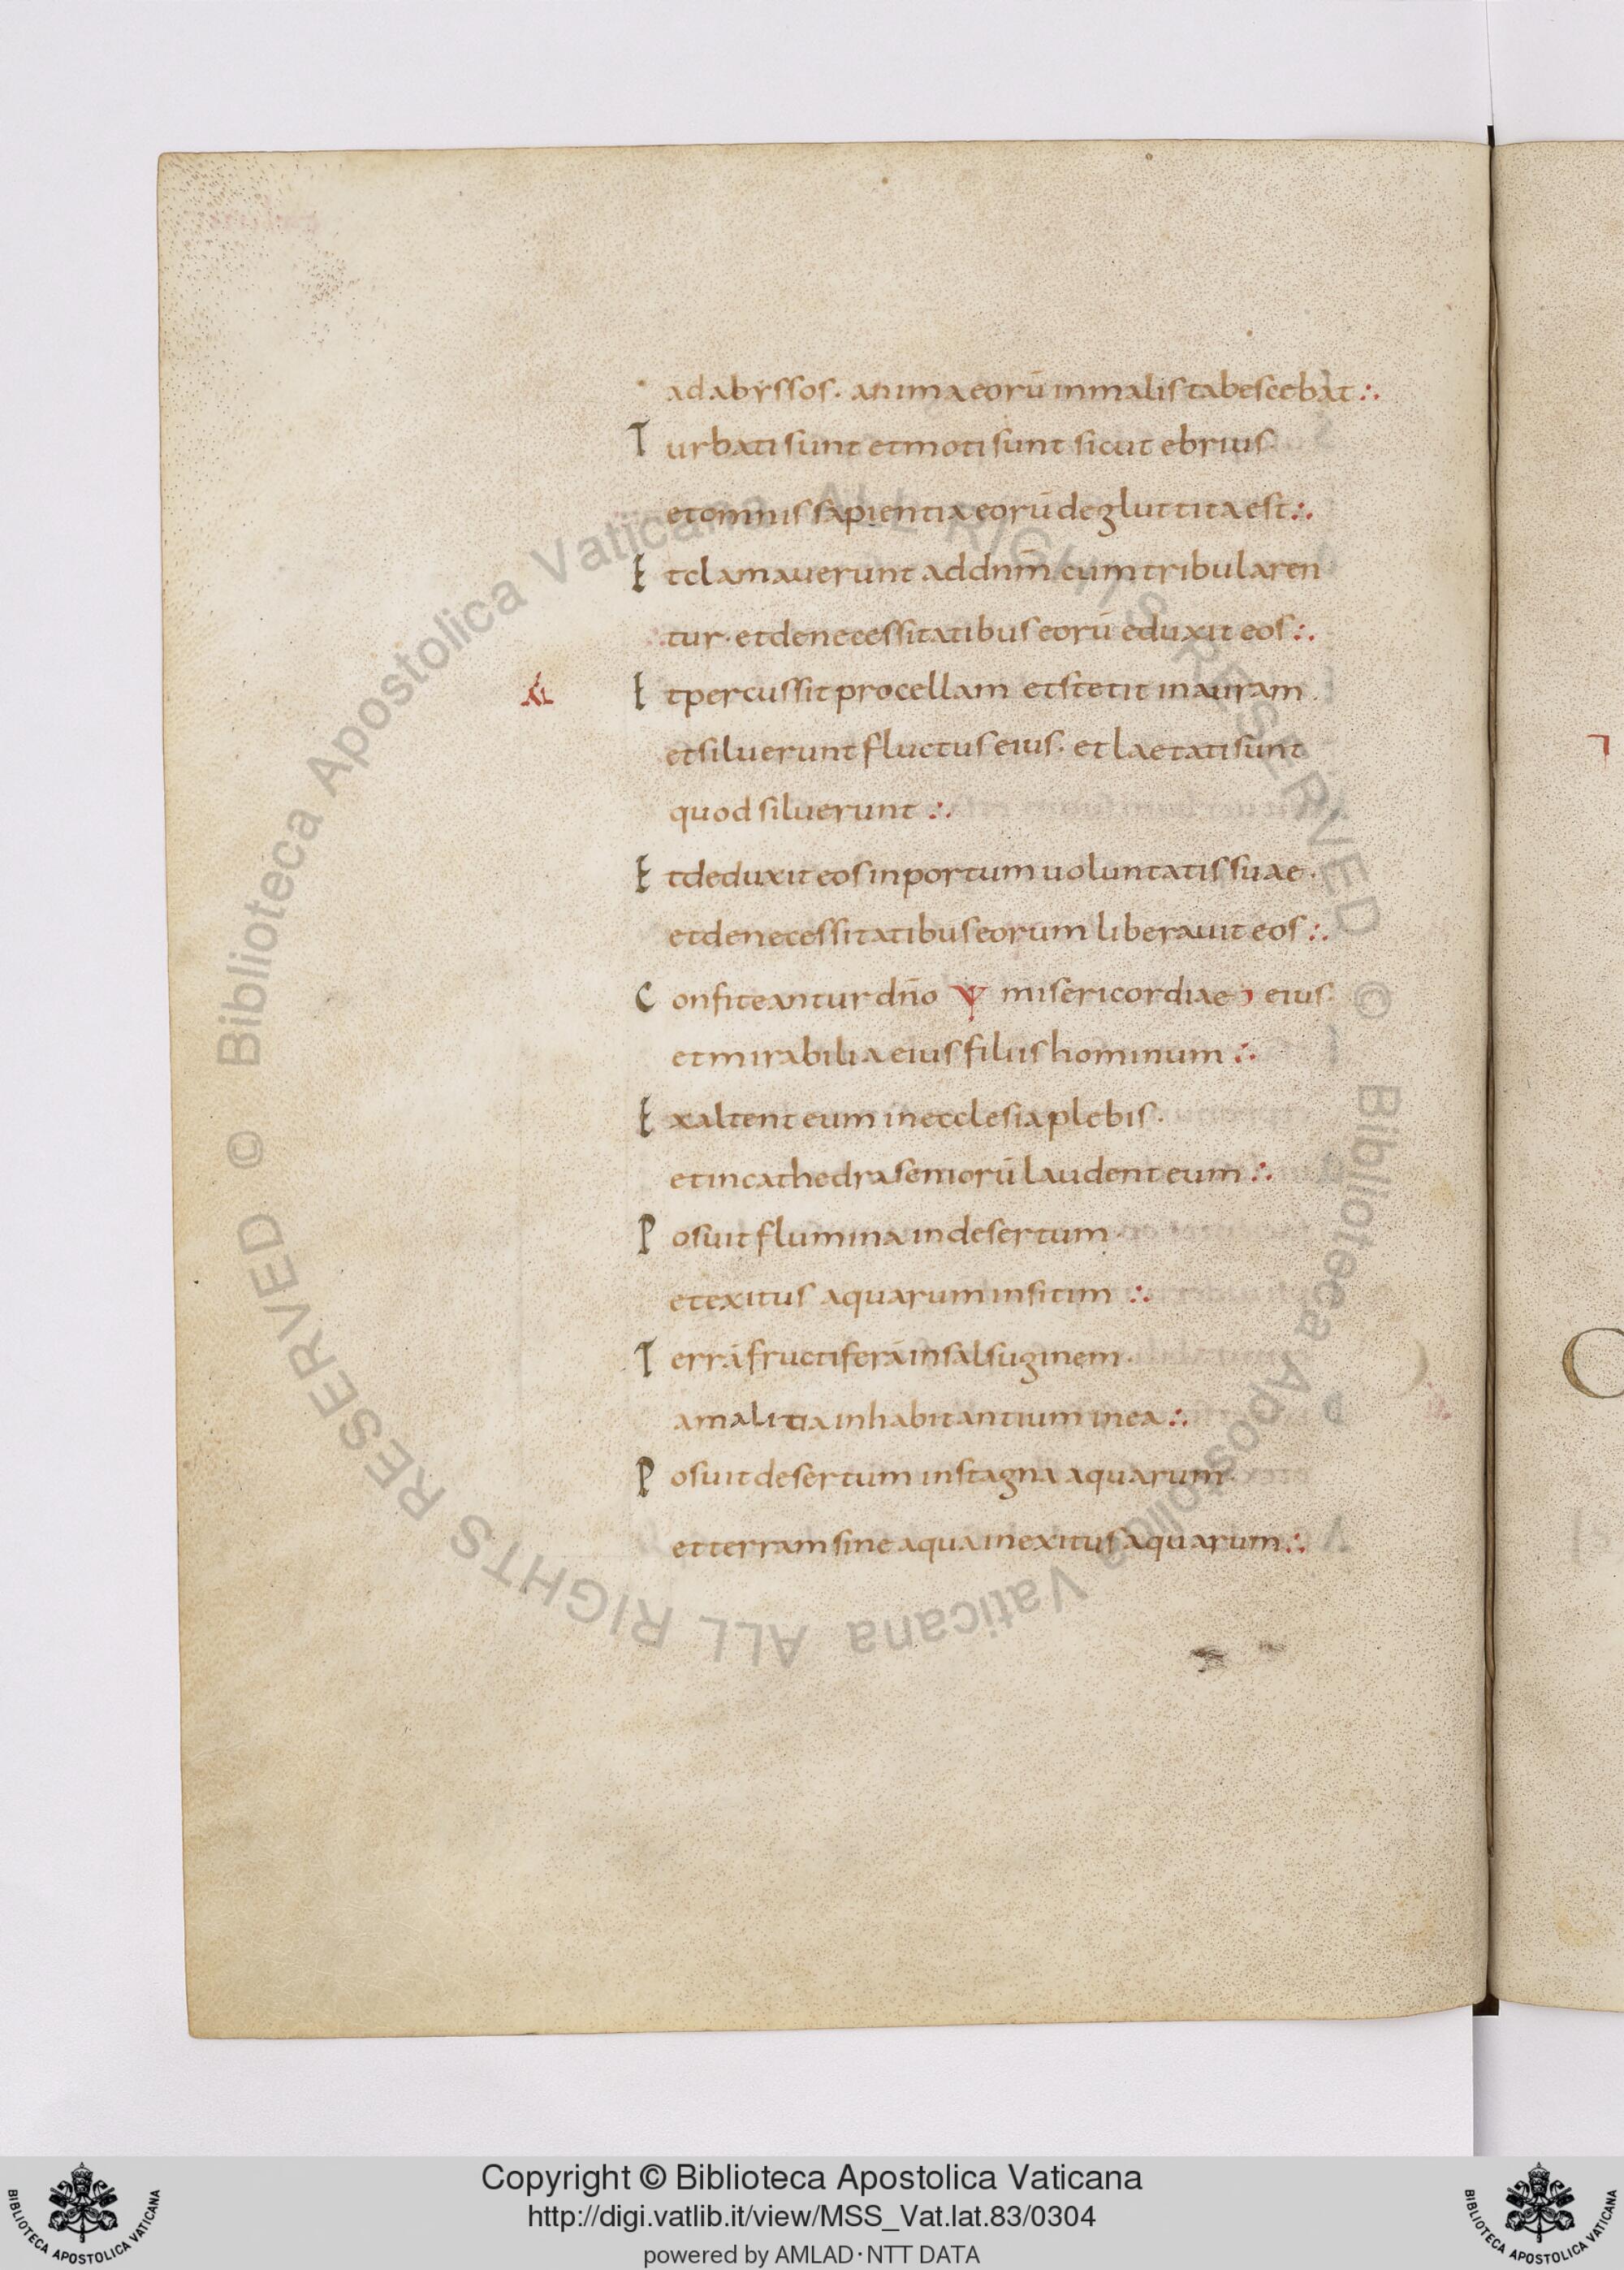 ad abyssos · anima eorū in malis tabescebat ∴
Turbati sunt et moti sunt sicut ebrius
et omnis sapientia eorū degluttita est ∴
Et clamaverunt ad dn̄m cum tribularen
tur · et de necessitatibus eorū eduxit eos ∴
Et percussit procellam et stetit in auram ·
et siluerunt fluctus eius · et laetati sunt
quod siluerunt ∴
Et deduxit eos in portum uoluntatis suae ·
et de necessitatibus eorum liberauit eos ∴
Confiteantur dn̄o misericordiae eius ·
et mirabilia eius filiis hominum ∴
Exaltent eum in ecclesia plebis ·
et in cathedra seniorū laudent eum ∴
Posuit flumina in desertum ·
et exitus aquarum in sitim ∴
Terrā fructiferā in salsuginem ·
a malitia inhabitantium in ea ∴
Posuit desertum in stagna aquarum ·
et terram sine aqua in exitus aquarum ∴
© Biblioteca Apostolica Vaticana ALL RIGHTS RESERVED © Biblioteca Apostolica Vaticana ALL RIGHTS RESERVED
Copyright © Biblioteca Apostolica Vaticana
http://digi.vatlib.it/view/MSS_Vat.lat.83/0304
powered by AMLAD·NTT DATA
BIBLIOTECA APOSTOLICA VATICANA
BIBLIOTECA APOSTOLICA VATICANA